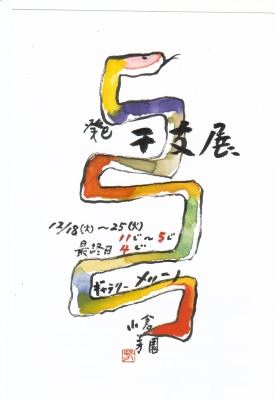 癸巳 干支展
12/18(火)～25(火)
11じ～5じ
最終日 4じ
ギャラリー メリーノ
小倉